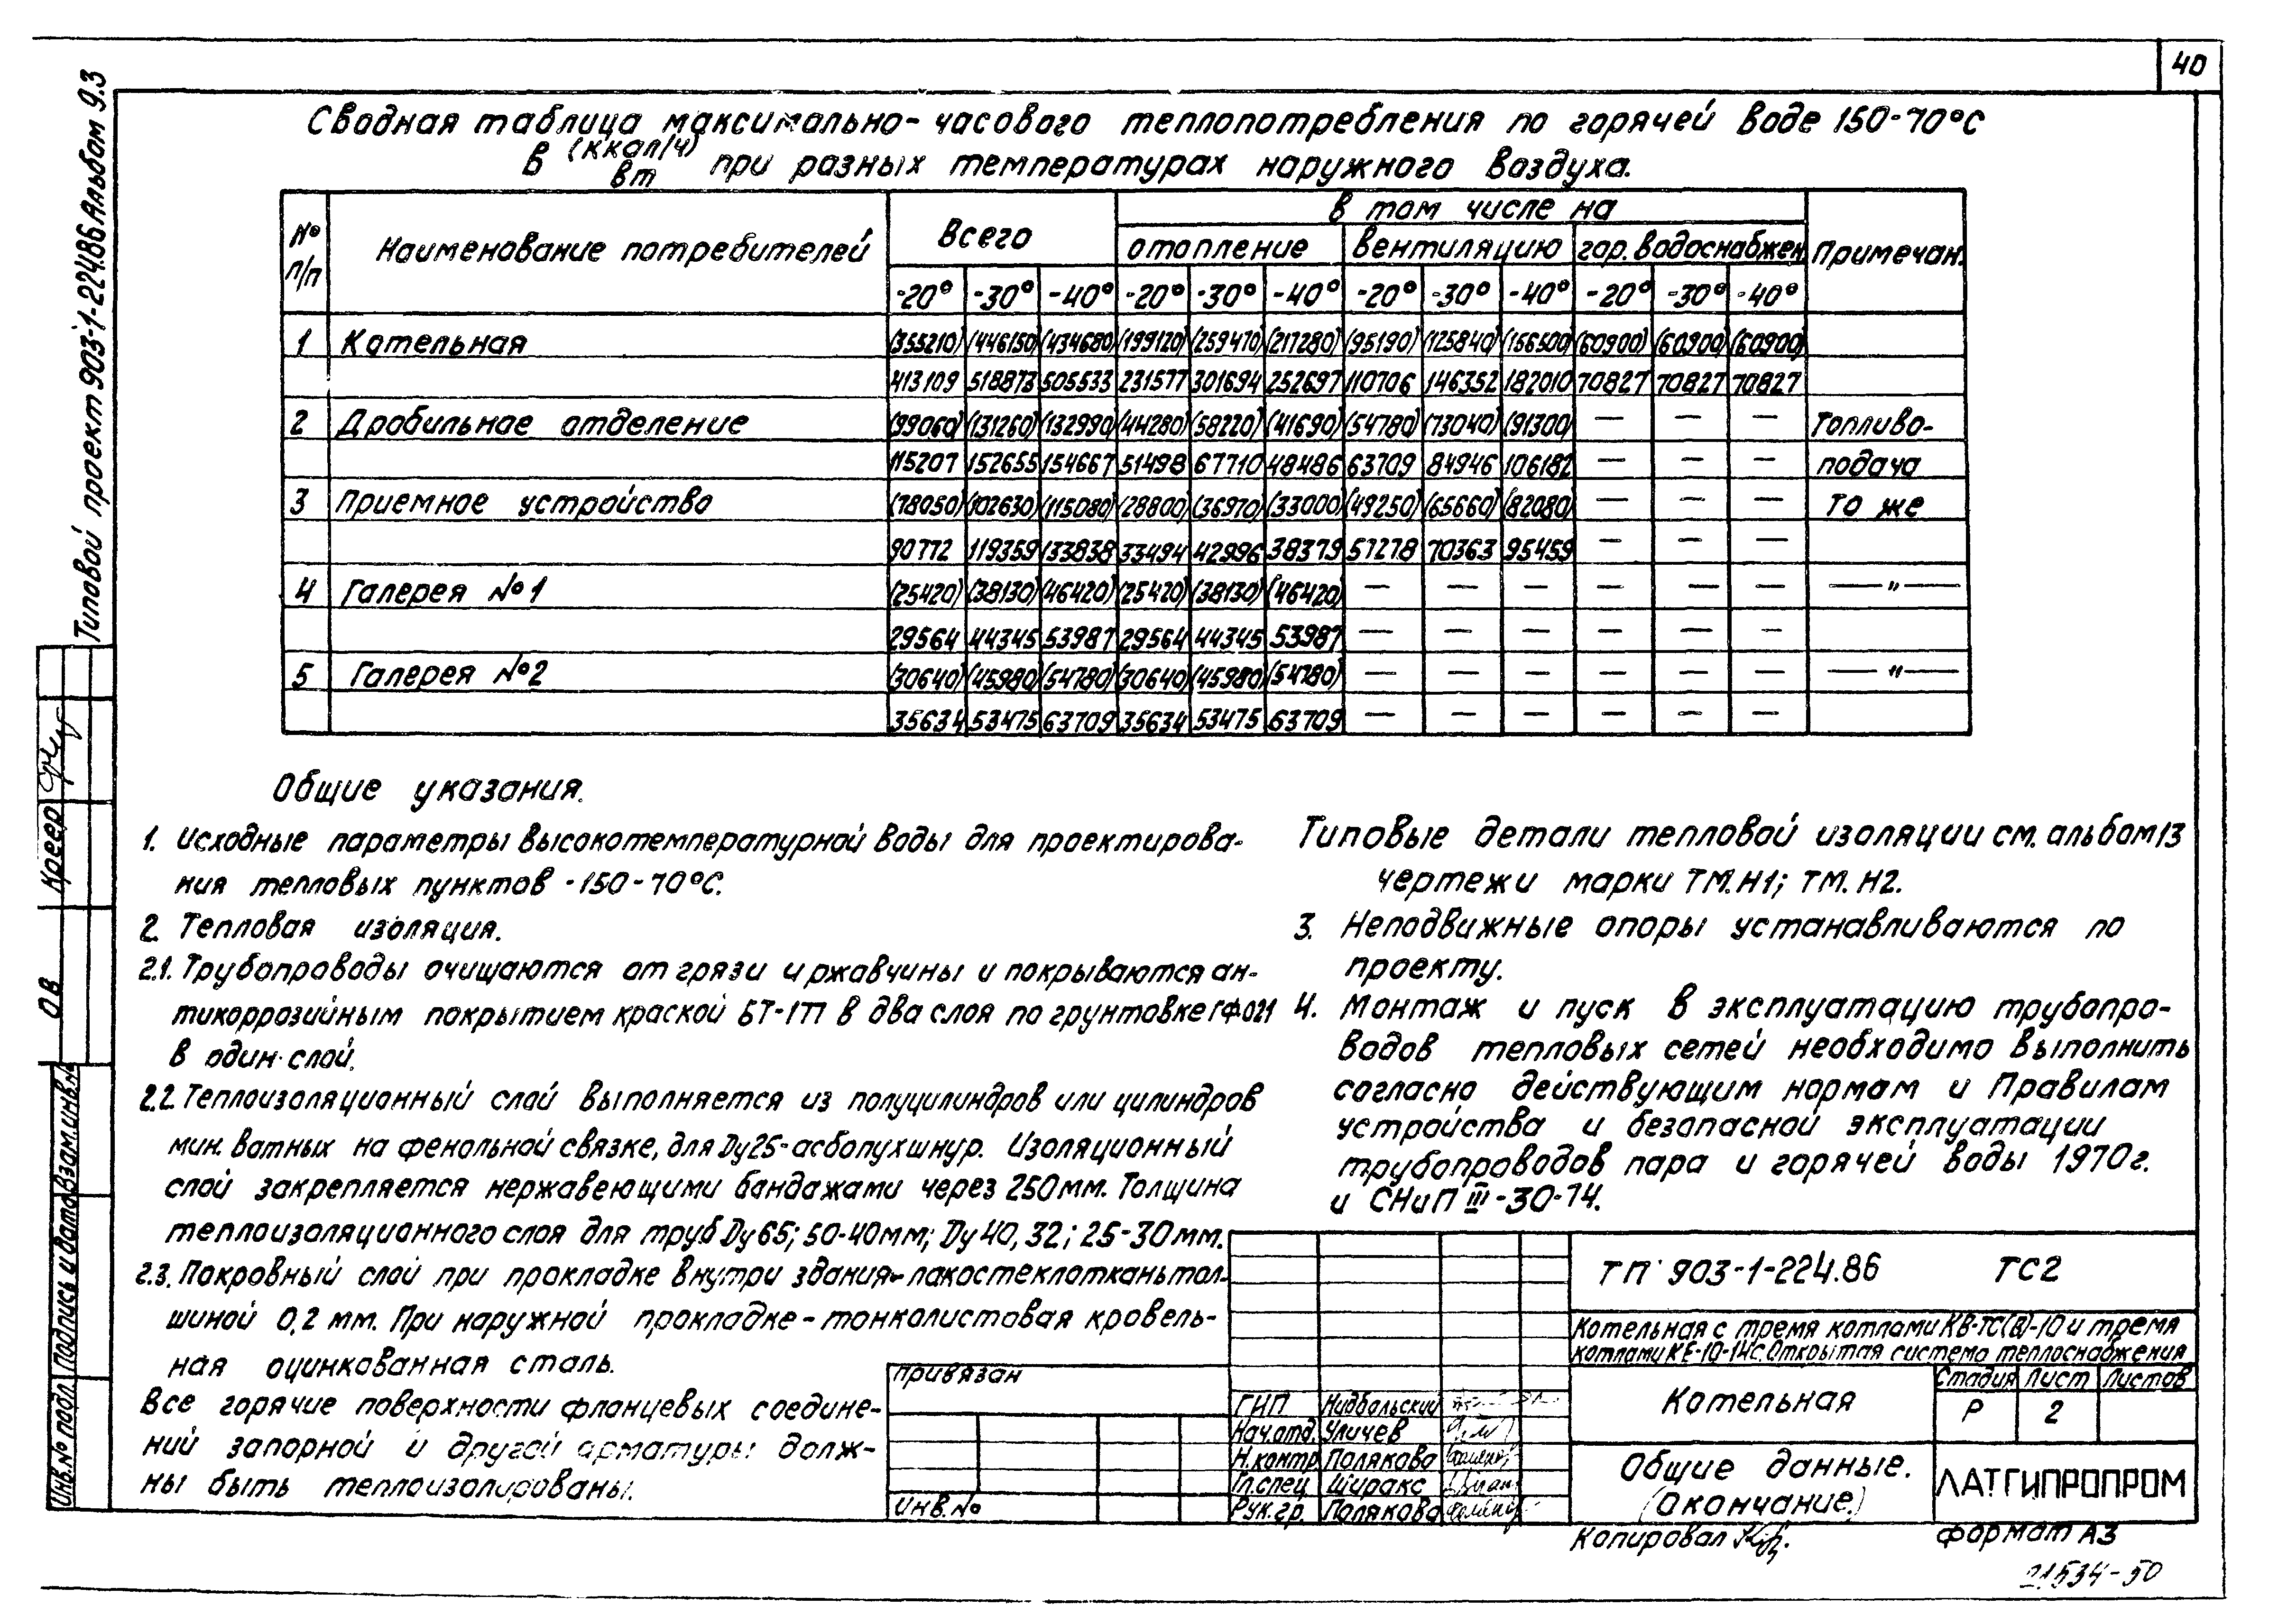 40
Типовой проект 903-1-224.86 Альбом 9.3
Сводная таблица максимально-часового теплопотребления по горячей воде 150-70°С
в (ккал/ч) вт при разных температурах наружного воздуха.
№ п/п Наименование потребителей Всего в том числе на Примечан.
отопление вентиляцию гор. водоснабжен
-20° -30° -40° -20° -30° -40° -20° -30° -40° -20° -30° -40°
1 Котельная (355210) (446150) (434680) (199120) (259470) (217280) (95190) (125840) (156500) (60900) (60900) (60900)
413109 518873 505533 231577 301694 252697 110706 146352 182010 70827 70827 70827
2 Дробильное отделение (99060) (131260) (132990) (44280) (58220) (41690) (54780) (73040) (91300) — — — Топливо-
115207 152655 154667 51498 67710 48486 63709 84946 106182 — — — подача
3 Приемное устройство (78050) (102630) (115080) (28800) (36970) (33000) (49250) (65660) (82080) — — — То же
90772 119359 133838 33494 42996 38379 57278 70363 95459 — — —
4 Галерея №1 (25420) (38130) (46420) (25420) (38130) (46420) — — — — — — —"—
29564 44345 53987 29564 44345 53987 — — — — — —
5 Галерея №2 (30640) (45980) (54780) (30640) (45980) (54780) — — — — — — —"—
35634 53475 63709 35634 53475 63709 — — — — — —
Общие указания.
1. Исходные параметры высокотемпературной воды для проектирова-
ния тепловых пунктов -150-70°С.
2. Тепловая изоляция.
2.1. Трубопроводы очищаются от грязи и ржавчины и покрываются ан-
тикоррозийным покрытием краской БТ-177 в два слоя по грунтовке ГФ.021
в один слой.
2.2. Теплоизоляционный слой выполняется из полуцилиндров или цилиндров
мин. ватных на фенольной связке, для Ду25-асбопухшнур. Изоляционный
слой закрепляется нержавеющими бандажами через 250мм. Толщина
теплоизоляционного слоя для труб Ду 65; 50-40мм; Ду 40, 32; 25-30мм.
2.3. Покровный слой при прокладке внутри здания-лакостеклоткань тол-
шиной 0,2 мм. При наружной прокладке-тонколистовая кровель-
ная оцинкованная сталь.
Все горячие поверхности фланцевых соедине-
ний запорной и другой арматуры долж-
ны быть теплоизолированы.
Типовые детали тепловой изоляции см. альбом 13
чертежи марки ТМ.Н1; ТМ.Н2.
3. Неподвижные опоры устанавливаются по
проекту.
4. Монтаж и пуск в эксплуатацию трубопро-
водов тепловых сетей необходимо выполнить
согласно действующим нормам и Правилам
устройства и безопасной эксплуатации
трубопроводов пара и горячей воды 1970г.
и СНиП III-30-74.
Привязан
Инв.№
ГИП Нидбальский
Нач.отд. Уличев
Н.контр Полякова
Гл.спец Ширакс
Рук.гр. Полякова
ТП 903-1-224.86 ТС2
Котельная с тремя котлами КВ-ТС(В)-10 и тремя
котлами КЕ-10-14с. Открытая система теплоснабжения
Котельная
Стадия Лист Листов
Р 2
Общие данные.
(окончание.)
ЛАТГИПРОПРОМ
Копировал
Формат А3
21534-50
ОВ Креер
Инв.№ подл. Подпись и дата Взам.инв.№